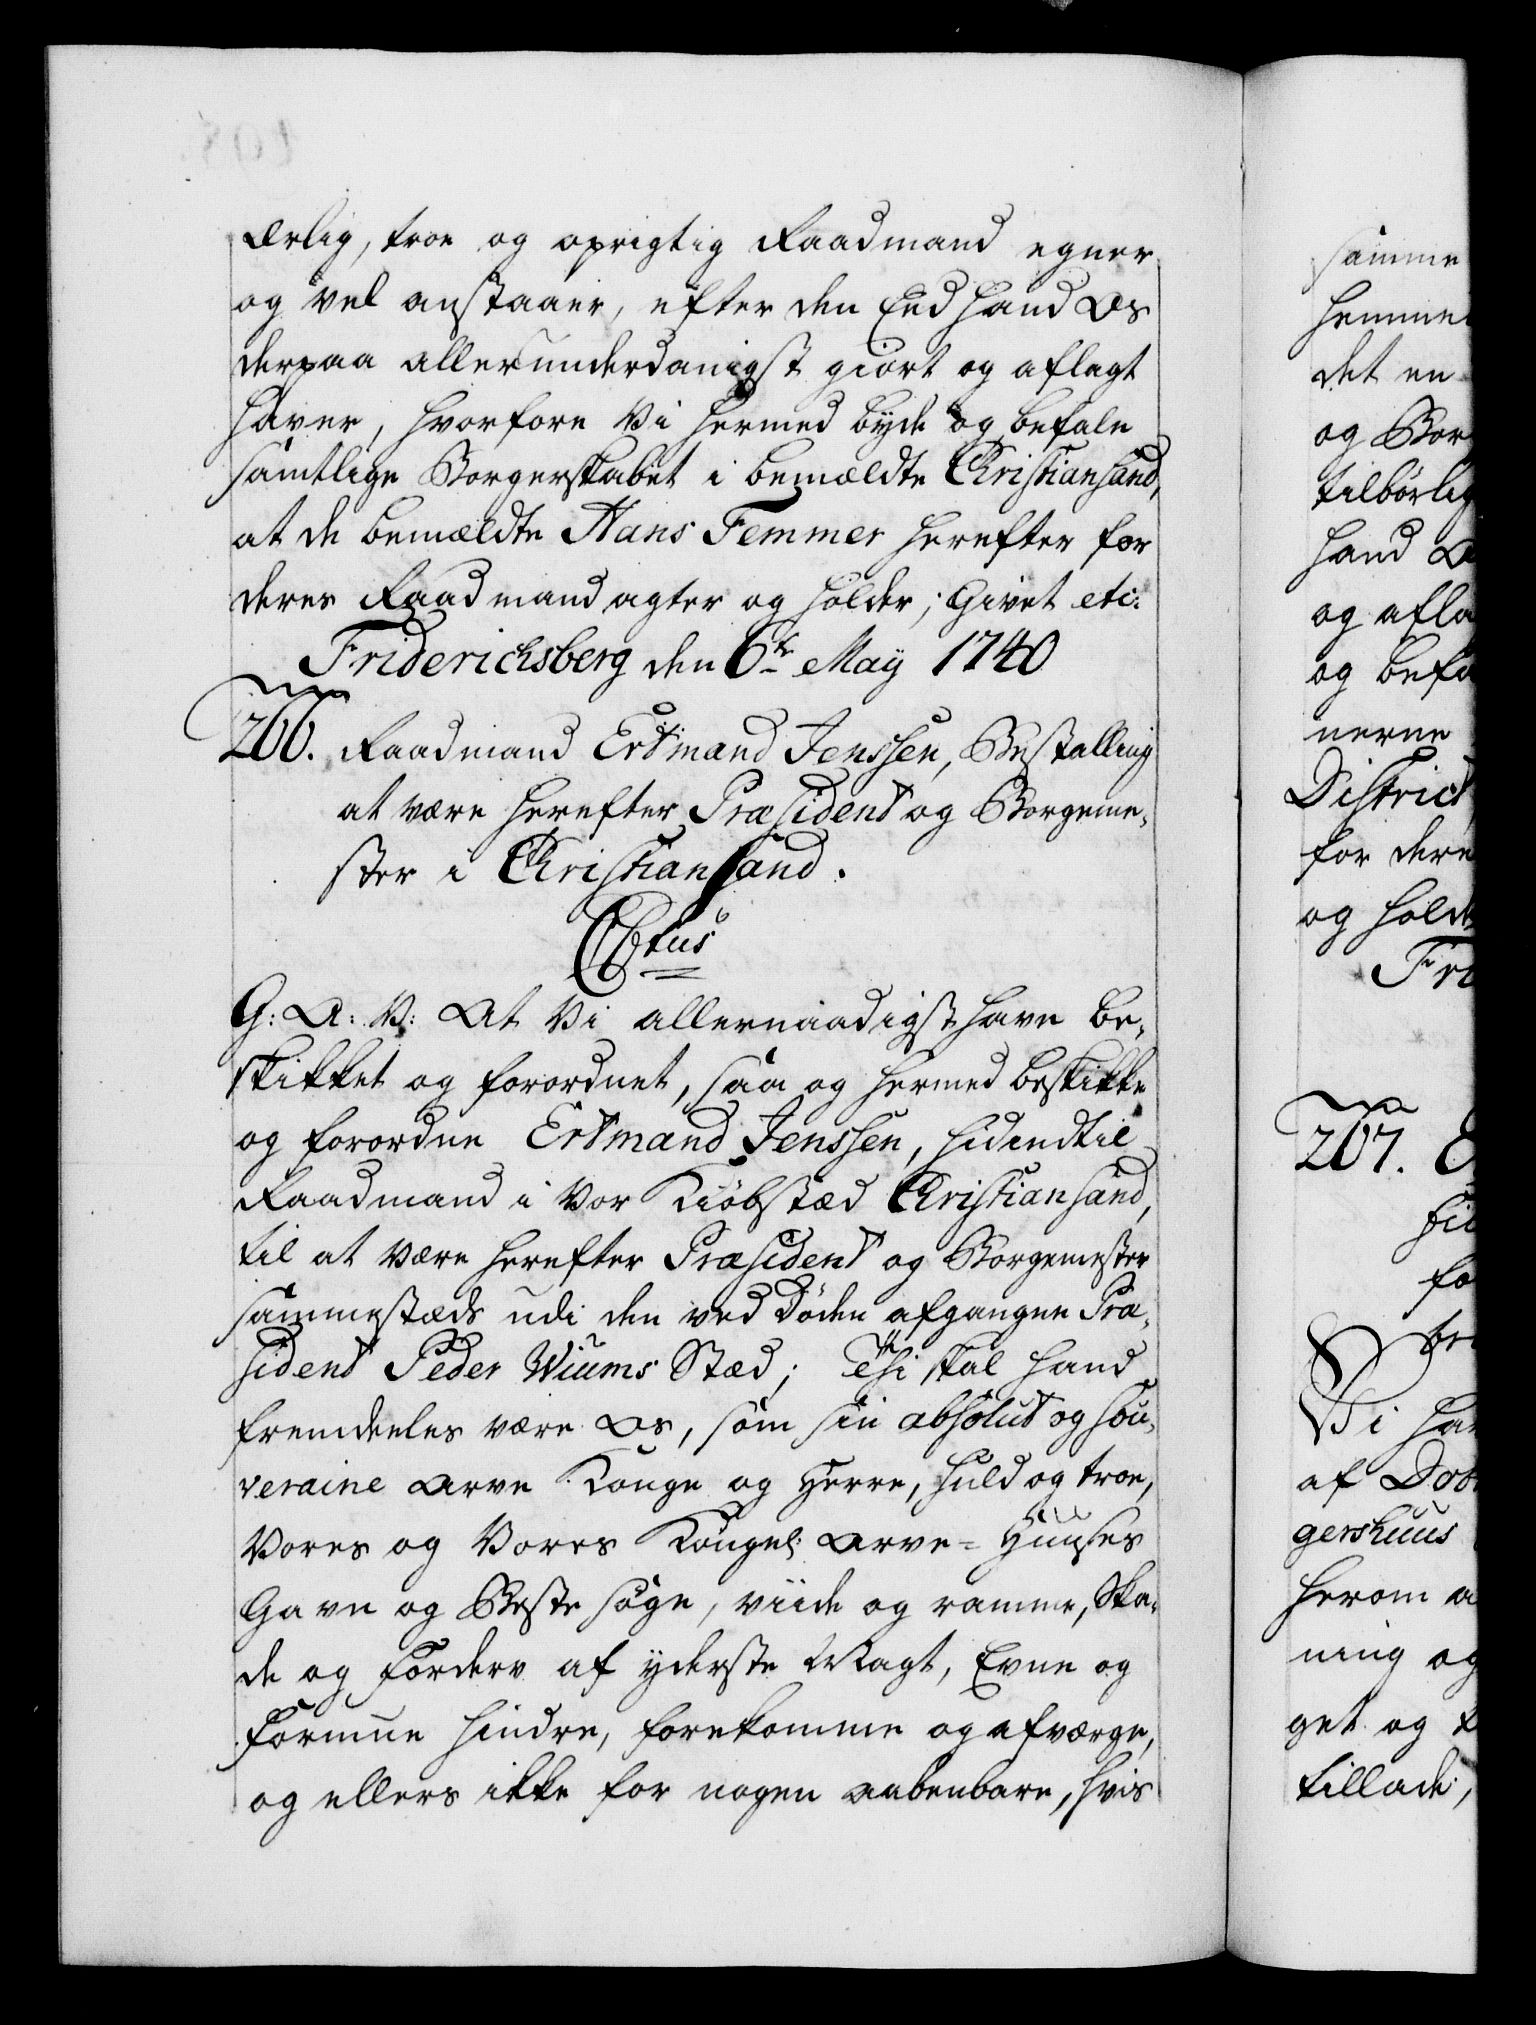 ærlig, troe og oprigtig Raadmand egner
og vel anstaaer, efter den Eed hand Os
derpaa allerunderdanigst giort og aflagt
haver, hvorfore Vi hermed byde og befale
samtlige Borgerskabet i bemældte Christiansand,
at de bemældte Hans Femmer herefter for
deres Raadmand agter og holder; Givet etc:
Friderichsberg den 6te May 1740
266. Raadmand Ertmand Jenssen, Bestalling
at være herefter Præsident og Borgeme-
ster i Christiansand.
C6tus
G: A: V: At Vi allernaadigst have be-
skikket og forordnet, saa og hermed beskikke
og forordne Ertmand Jenssen, hidindtil
Raadmand i Vor Kiøbstæd Christiansand,
til at være herefter Præsident og Borgemester
sammestæds udi den ved Døden afgangne Præ-
sident Peder Wiums Stæd; Thi skal hand
fremdeeles være Os, som sin absolut og sou-
veraine Arve Konge og Herre, huld og troe,
Vores og Vores Kongel: Arve-Huuses
Gavn og Beste søge, viide og ramme, Ska-
de og Forderv af yderste Magt, Evne og
Formue hindre, forekomme og afværge,
og ellers ikke for nogen aabenbare, hvis
samme
hemme
det en
og Bor
tilbørlig
hand
og afla
og befa
nerne
District
for dere
og hold
Fri
267.
til
fo
Vi ha
af Do
gershuus
herom a
ning og
get og
tillade,